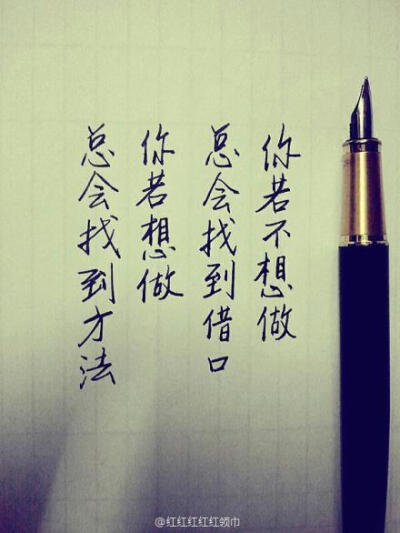 你若不想做
总会找到借口
你若想做
总会找到方法
@红红红红红领巾